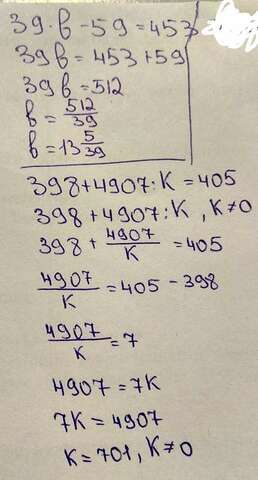 39·в - 59 = 453
39в = 453 + 59
39в = 512
в = 512/39
в = 13 5/39
398 + 4907 : К = 405
398 + 4907 : К , К ≠ 0
398 + 4907/К = 405
4907/К = 405 - 398
4907/К = 7
4907 = 7К
7К = 4907
К = 701 , К ≠ 0